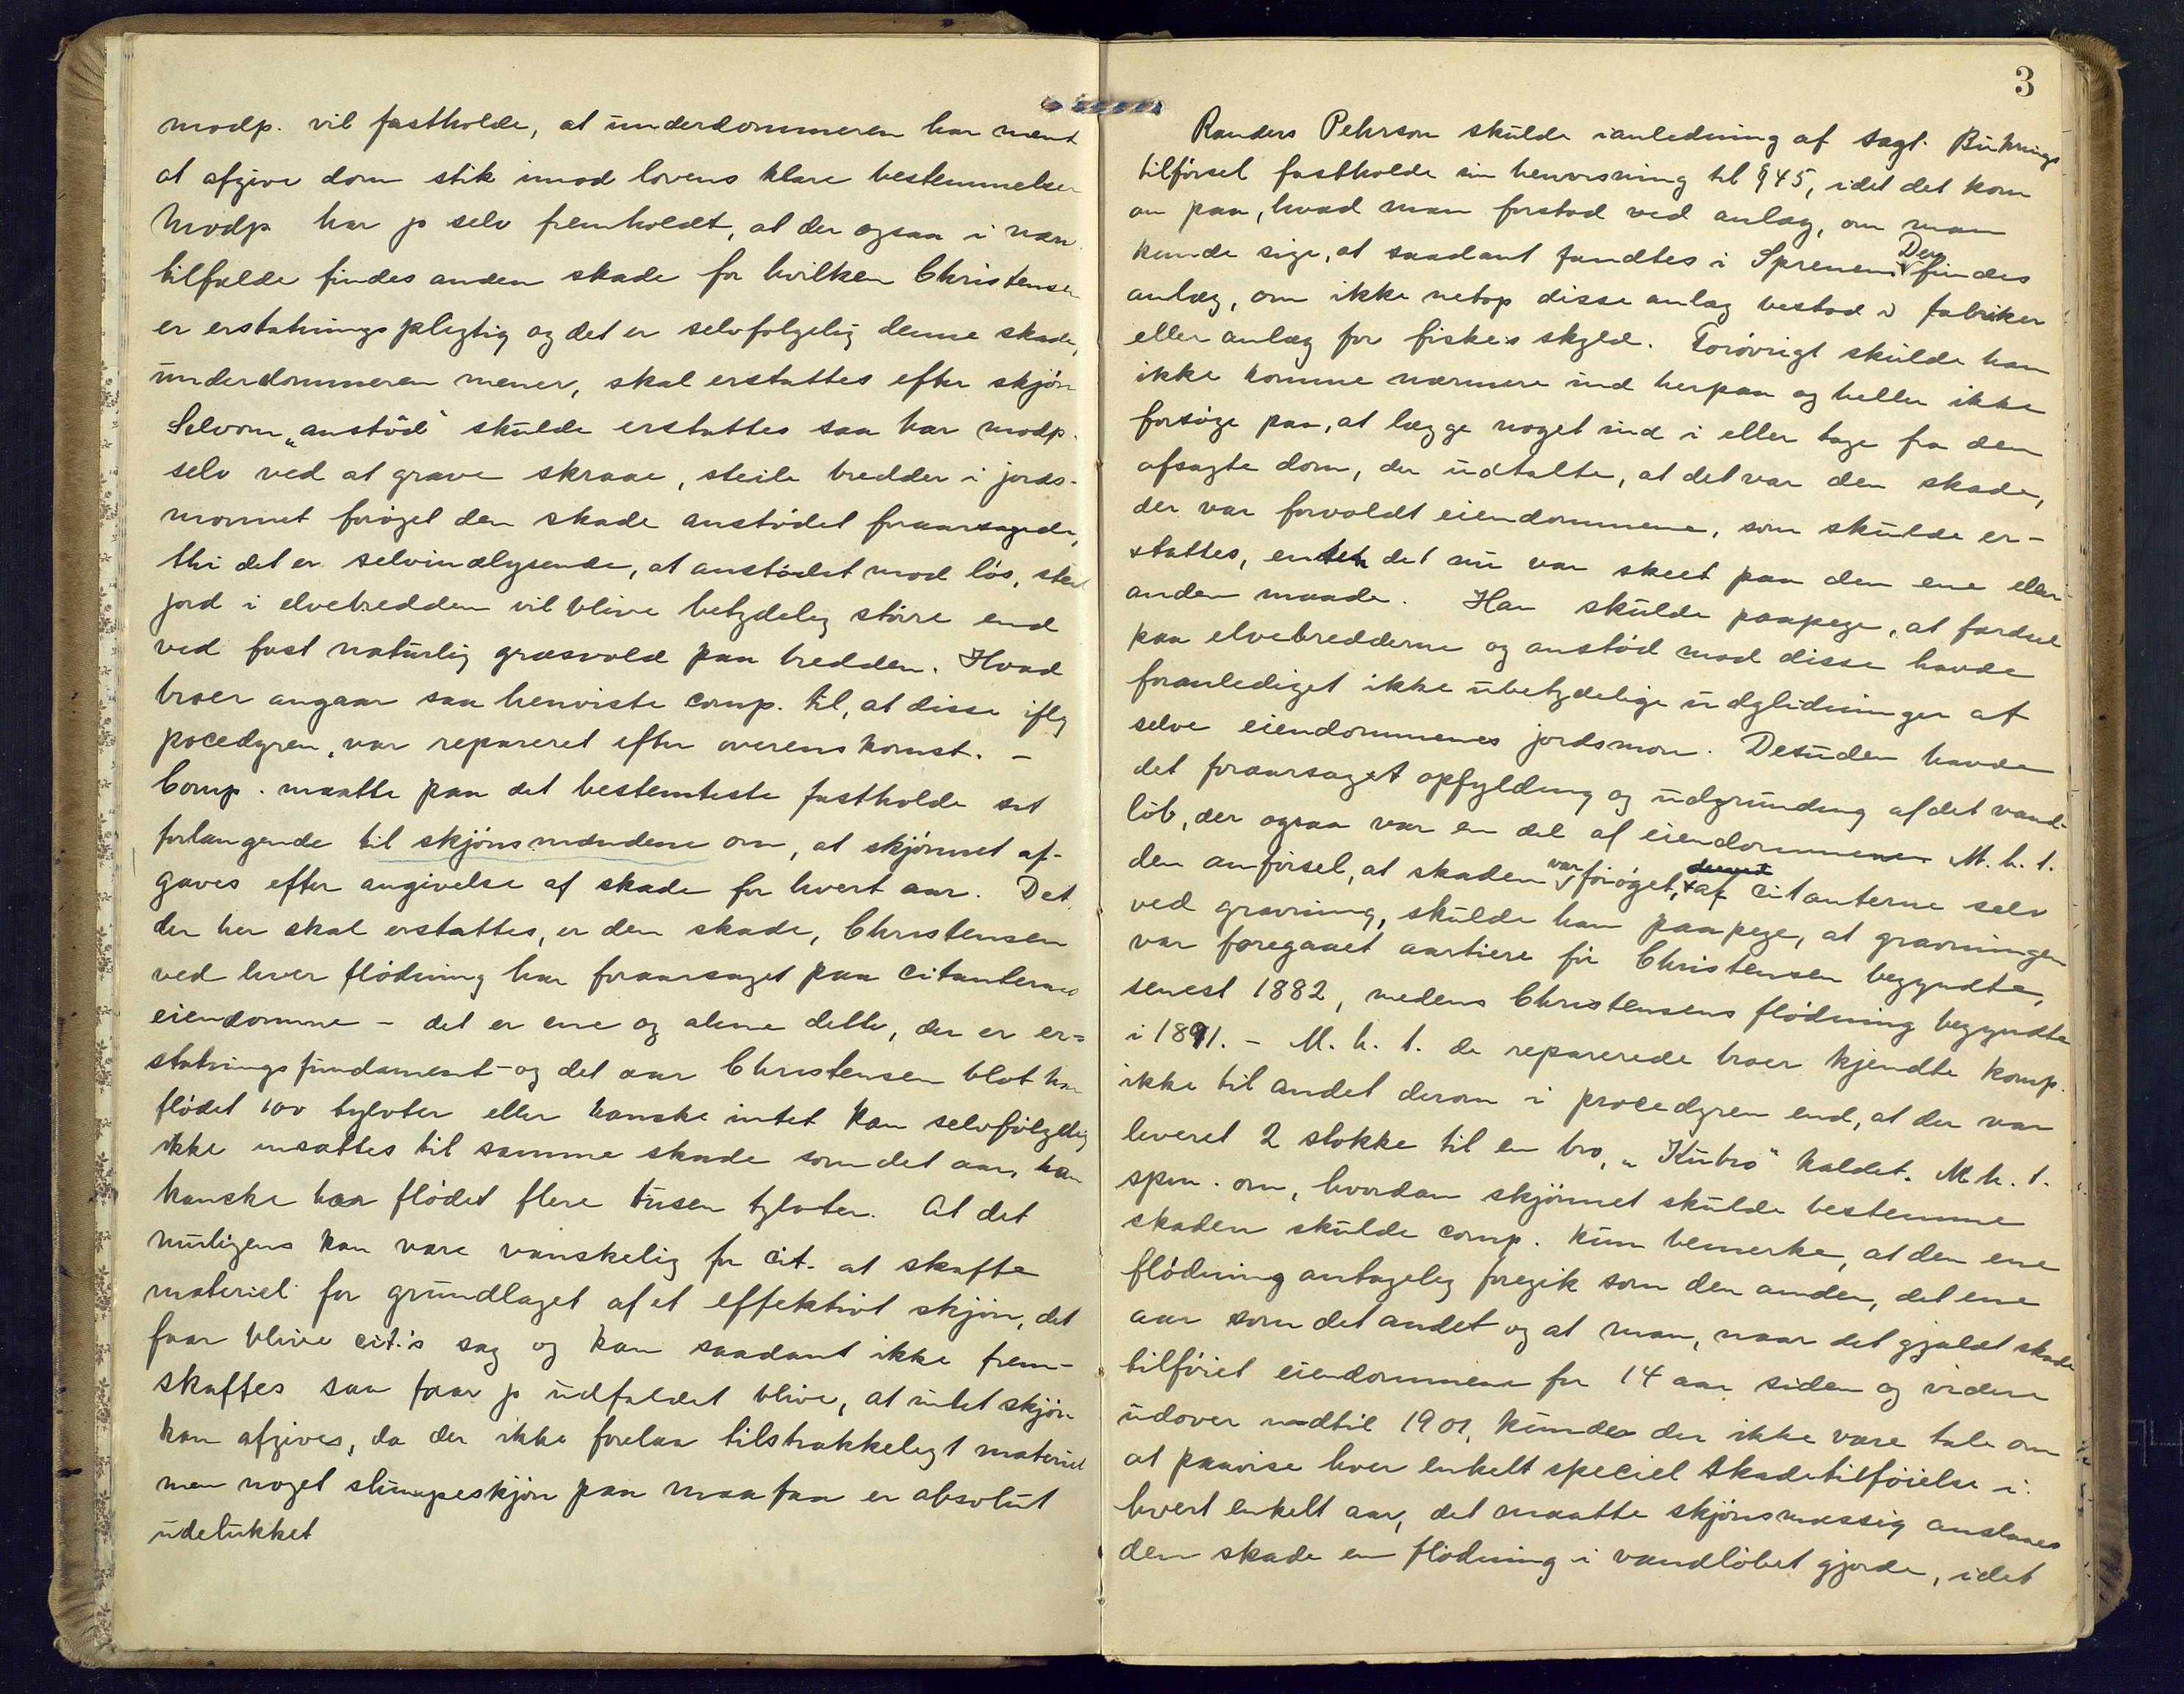 modp. vil fastholde, at underdommeren har ment
at afgive dom stik imod lovens klare bestemmelser
Modp har jo selv fremholdt, at der ogsaa i nær.
tilfælde findes anden skade for hvilken Christensen
er erstatningspligtig og det er selvfølgelig denne skade,
underdommeren mener, skal erstattes efter skjøn
Selvom „anstöd" skulde erstattes saa har modp.
selv ved at grave skraae, steile bredder i jords-
monnet foröget den skade anstödet foraarsagede,
thi det er selvindlysende, at anstödet mod lös, steil
jord i elvebredden vil blive betydelig större end
ved fast naturlig græsvold paa bredden. Hvad
broer angaar saa henviste comp. til, at disse iflg
pocedyren, var repareret efter overenskomst. –
Comp. maatte paa det bestemteste fastholde sit
forlangende til skjönsmændene om, at skjönnet af-
gaves efter angivelse af skade for hvert aar. Det
der her skal erstattes, er den skade, Christensen
ved hver flödning har foraarsaget paa citanternes
eiendomme – det er ene og alene dette, der er er=
statningsfundament – og det aar Christensen blot har
flödet 100 tylvter eller kanske intet kan selvfölgelig
ikke ansættes til samme skade som det aar, han
kanske har flödet flere tusen tylvter. At det
muligens kan være vanskelig for cit. at skaffe
materiel for grundlaget af et effektivt skjön, det
faar blive cit.'s sag og kan saadant ikke frem-
skaffes saa faar jo udfaldet blive, at intet skjön
kan afgives, da der ikke forelaa tilstrækkeligt materiel
men noget slumpeskjön paa maa faa er absolut
udelukket
3
Randers Pehrson skulde ianledning af sagf. Bührings
tilförsel fastholde sin henvisning til § 45, idet det kom
an paa, hvad man forstod ved anlæg, om man
kunde sige, at saadant fandtes i Sprenem Der findes
anlæg, om ikke netop disse anlæg bestod i fabriker
eller anlæg for fiskes skyld. Forövrigt skulde han
ikke komme nærmere ind herpaa og heller ikke
forsöge paa, at lægge noget ind i eller tage fra den
afsagte dom, der udtalte, at det var den skade,
der var forvoldt eiendommene, som skulde er-
stattes, enten det nu var skeet paa den ene eller
anden maade. Han skulde paapege, at færdsel
paa elvebredderne og anstöd mod disse havde
foranlediget ikke ubetydelige udglidninger af
selve eiendommenes jordsmon. Desuden havde
det foraarsaget opfyldning og udgrunding af det vand-
löb, der ogsaa var en del af eiendommenen M. h. t.
den anförsel, at skaden var foröget, af citanterne selv
ved gravning, skulde han paapege, at gravningen
var foregaaet aartiere för Christensen begyndte,
senest 1882, medens Christensens flödning begyndte
i 1891. – M. h. t. de reparerede broer kjendte komp.
ikke til andet derom i procedyren end, at der var
leveret 2 stokke til en bro, „Kubro" kaldet. M. h. t.
spm. om, hvordan skjönnet skulde bestemme
skaden skulde comp. kun bemerke, at den ene
flödning antagelig foregik som den anden, det ene
aar som det andet og at man, naar det gjaldt skade
tilföiet eiendommene for 14 aar siden og videre
udover indtil 1901, kunde der ikke være tale om
at paavise hver enkelt speciel skadetilföielse i
hvert enkelt aar, det maatte skjönsmæssig anslaaes
den skade en flödning i vandlöbet gjorde, idet